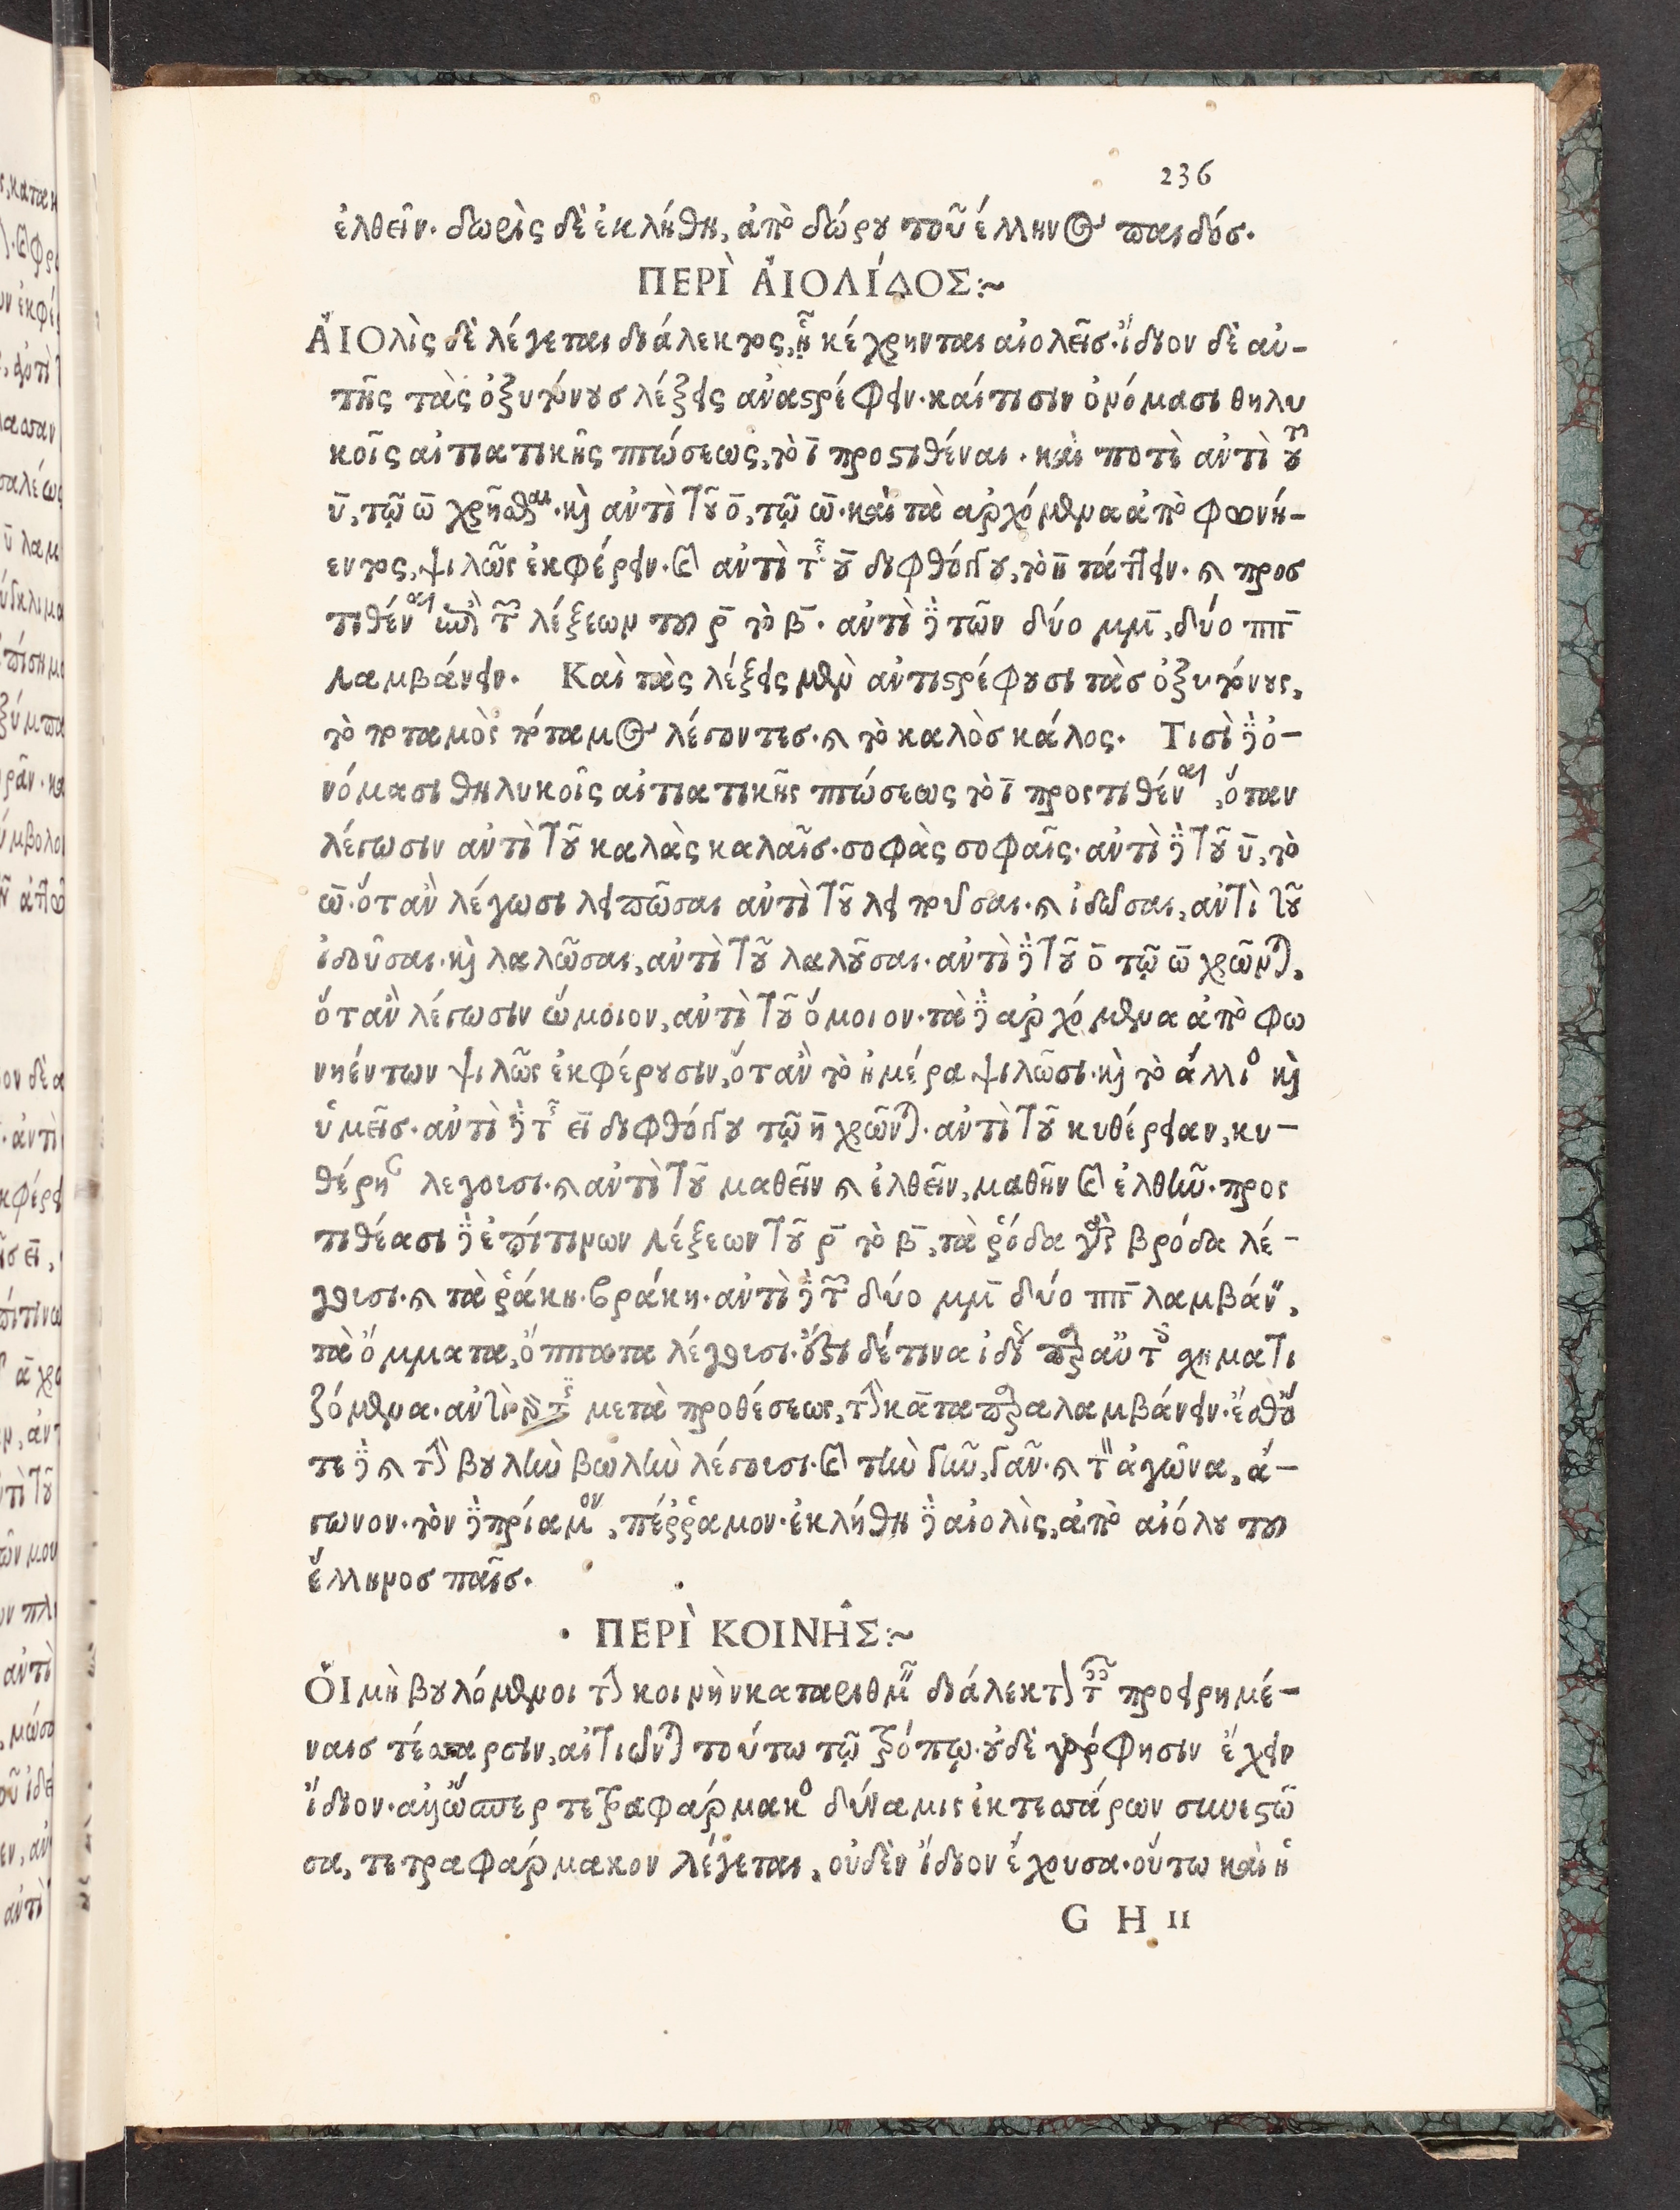 236
ἐλθεῖν. δωρὶς δὲ ἐκλήθη, ἀπὸ δώρου τοῦ ἕλληνος παιδόσ.
ΠΕΡῚ ἈΙΟΛΊΔΟΣ:~
ἈΙΟλὶς δὲ λέγεται διάλεκτος, ᾗ κέχρηνται αἰολεῖσ. ἴδιον δὲ αὐ-
τῆς τὰς ὀξυτόνουσ λέξεις ἀναστρέφειν. καί τισιν ὀνόμασι θηλυ
κοῖς αἰτιατικῆς πτώσεως, τὸ ῑ προστιθέναι. καὶ ποτὲ ἀντὶ τοῦ
ῡ, τῷ ω̄ χρῆσθαι. καὶ ἀντὶ τοῦ ο̄, τῷ ω̄. καὶ τὰ ἀρχόμενα ἀπὸ φωνή-
εντος, ψιλῶς ἐκφέρειν. καὶ ἀντὶ τῆς ου διφθόγγου, τὸ η̄ τάττειν. καὶ προσ
τιθέναι ἐπὶ τῶν λέξεων του ρ̄ τὸ β̄. ἀντὶ δὲ τῶν δύο μμ̄, δύο ππ̄
λαμβάνειν. Καὶ τὰς λέξεις μὲν ἀντιστρέφουσι τὰσ ὀξυτόνους,
τὸ ποταμὸς πόταμος λέγοντεσ. καὶ τὸ καλὸσ κάλος. Τισὶ δὲ ὀ-
νόμασι θηλυκοῖς αἰτιατικῆς πτώσεως τὸ ῑ προστιθέναι, ὅταν
λέγωσιν ἀντὶ τοῦ καλὰς καλαῖσ. σοφὰς σοφαῖς. ἀντὶ δὲ τοῦ ῡ, τὸ
ω̄. ὅταν λέγωσι λειπῶσαι ἀντὶ τοῦ λειποῦσαι. καὶ ἰδῶσαι, ἀντὶ τοῦ
ἰδοῦσαι. καὶ λαλῶσαι, ἀντὶ τοῦ λαλοῦσαι. ἀντὶ δὲ τοῦ ο̄ τῷ ω̄ χρῶνται,
ὅταν λέγωσιν ὤμοιον, ἀντὶ τοῦ ὅμοιον. τὰ δὲ ἀρχόμενα ἀπὸ φω
νηέντων ψιλῶς ἐκφέρουσιν, ὅταν τὸ ἡμέρα ψιλῶσι. καὶ τὸ ἅλλιο καὶ
ὑμεῖσ. ἀντὶ δὲ τῆς ει διφθόγγου τῷ η̄ χρῶνται. ἀντὶ τοῦ κυθέρειαν, κυ-
θέρης λεγοισι. καὶ ἀντὶ τοῦ μαθεῖν καὶ ἐλθεῖν, μαθῆν καὶ ἐλθῆν. προς
τιθέασι δὲ ἐπίτινων λέξεων τοῦ ρ̄ τὸ β̄, τὰ ῥόδα γὰρ βρόδα λέ-
γοισι. καὶ τὰ ῥάκη. βράκη. ἀντὶ δὲ τῶν δύο μμ̄ δύο ππ̄ λαμβάνειν,
τὰ ὄμματα, ὄππατα λέγοισι. ἔστι δέ τινα ἰδίου παραὐτοῖς σχηματι
ζόμενα. μετὰ προθέσεως, τὴν κᾱτα παραλαμβάνειν. ἔσθ ὅ
τε δὲ καὶ τὴν βουλὴν βωλὴν λέγοισι. καὶ τὴν γῆν, γᾶν. καὶ τὸν ἀγῶνα, ἄ-
γωνον. τὸν δὲ πρίαμον, πέῤῥαμον. ἐκλήθη δὲ αἰολὶς, ἀπὸ αἰόλου του
ἕλληνοσ παῖσ.
ΠΕΡῚ ΚΟΙΝΗ͂Σ:~
ὉΙ μὴ βουλόμενοι τὴν κοινὴν καταριθμεῖν διάλεκτον ταῖς προειρημέ-
ναισ τέσσαρσιν, αἰτιῶνται τούτω τῷ τρόπῳ. οὐδὲ γράφησιν ἔχειν
ἴδιον. ἀλλ ὥσπερ τετραφάρμακος δύναμις ἐκ τεσσάρων συνεστῶ
σα, τετραφάρμακον λέγεται, οὐδὲν ἴδιον ἔχουσα. οὕτω καὶ ἡ
G H II